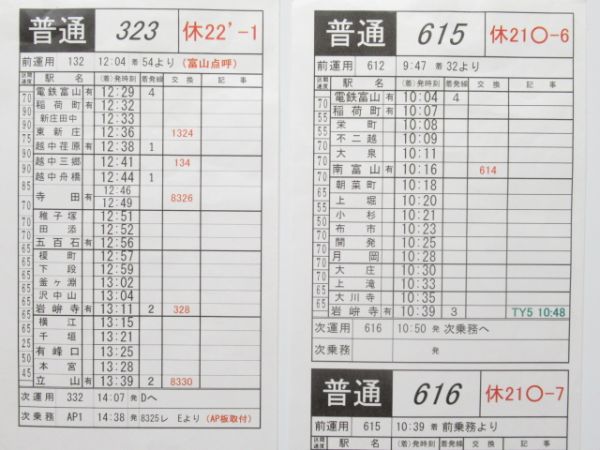 普通 323 休22'-1
前運用 132 12:04 着 54より (富山点呼)
区間速度 駅名 (着)発時刻 着発線 交換 記事
電鉄富山 有 12:29 4
70
稲荷町 有 12:32
90
新庄田中 12:33
90
東新庄 12:36 1324
75
越中荏原 有 12:38 1
90
越中三郷 12:41 134
90
越中舟橋 12:44 1
85
寺田 有 12:46 12:49 8326
70
稚子塚 12:51
70
田添 12:52
70
五百石 有 12:56
65
榎町 12:57
65
下段 12:59
65
釜ヶ淵 13:02
65
沢中山 13:04
65
岩峅寺 有 13:11 2 328
65
横江 13:15
千垣 13:21
25
有峰口 13:25
50
本宮 13:28
45
立山 有 13:39 2 8330
次運用 332 14:07 発 Dへ
次乗務 AP1 14:38 発 8325レ Eより (AP板取付)
普通 615 休21〇-6
前運用 612 9:47 着 32より
区間速度 駅名 (着)発時刻 着発線 交換 記事
電鉄富山 有 10:04 4
70
稲荷町 有 10:07
55
栄町 10:08
不二越 10:09
大泉 10:11
南富山 有 10:16 614
朝菜町 10:18
65
上堀 10:20
55
小杉 10:21
布市 10:23
開発 10:25
月岡 10:28
70
大庄 10:30
上滝 10:33
65
大川寺 10:35
65
岩峅寺 有 10:39 3 TY5 10:48
次運用 616 10:50 発 次乗務へ
次乗務 発
普通 616 休21〇-7
前運用 615 10:39 着 前乗務より
区間 駅名 (着)発時刻 着発線 交換 記事